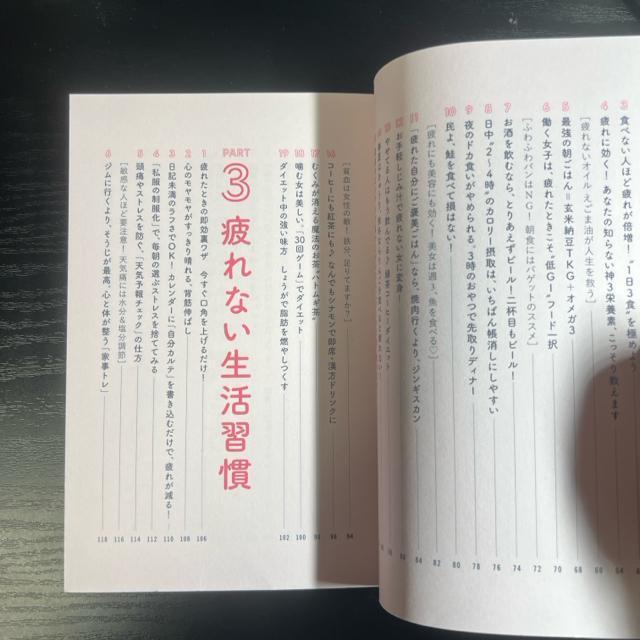 3 食べない人ほど疲れが倍増!"1日3食"を
4 疲れに効く! あなたの知らない神3栄養素、こっそり教えます 64
[疲れないオイル えごま油が人生を救う] 66
5 最強の朝ごはん=玄米納豆TKG+オメガ3 68
6 働く女子は、疲れたときこそ"低GIフード"一択 70
[ふわふわパンはNG!朝食にはバゲットのススメ] 72
7 お酒を飲むなら、とりあえずビール!二杯目もビール! 74
8 日中"2〜4時"のカロリー摂取は、いちばん帳消しにしやすい 76
9 夜のドカ食いがやめられる。3時のおやつで先取りディナー 78
10 民よ、鮭を食べて損はない! 80
[疲れにも美容にも効く! 美女は週3、魚を食べる♡] 82
11 「疲れた自分にご褒美ごはん」なら、焼肉行くより、ジンギスカン 84
お手軽しじみ汁で疲れない女に変身!
16 コーヒーにも紅茶にも♪ なんでもシナモンで即席・漢方ドリンクに 96
[貧血は女性の敵!鉄分、足りてますか?] 94
むくみが消える魔法のお茶、"ハトムギ茶"
18 噛む女は美しい。「30回ゲーム」でダイエット 100
19 ダイエット中の強い味方 しょうがで脂肪を燃やしつくす 102
PART 3 疲れない生活習慣
1 疲れたときの即効裏ワザ 今すぐ口角を上げるだけ! 106
2 心のモヤモヤがすっきり晴れる、背筋伸ばし 108
3 日記未満のラフさでOK! カレンダーに「自分カルテ」を書き込むだけで、疲れが減る! 110
4 「私服の制服化」で、毎朝の選ぶストレスを捨ててみる 112
5 頭痛やストレスを防ぐ、「天気予報チェック」の仕方 114
[敏感な人ほど要注意! 天気痛には水分&塩分調節] 116
6 ジムに行くより、そうじが最高。心と体が整う「家事トレ」 118